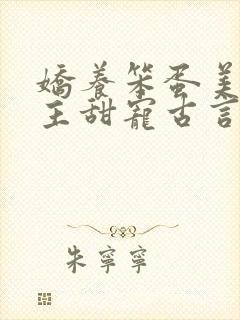 嬌養笨蛋美
王甜寵古言
朱寧寧